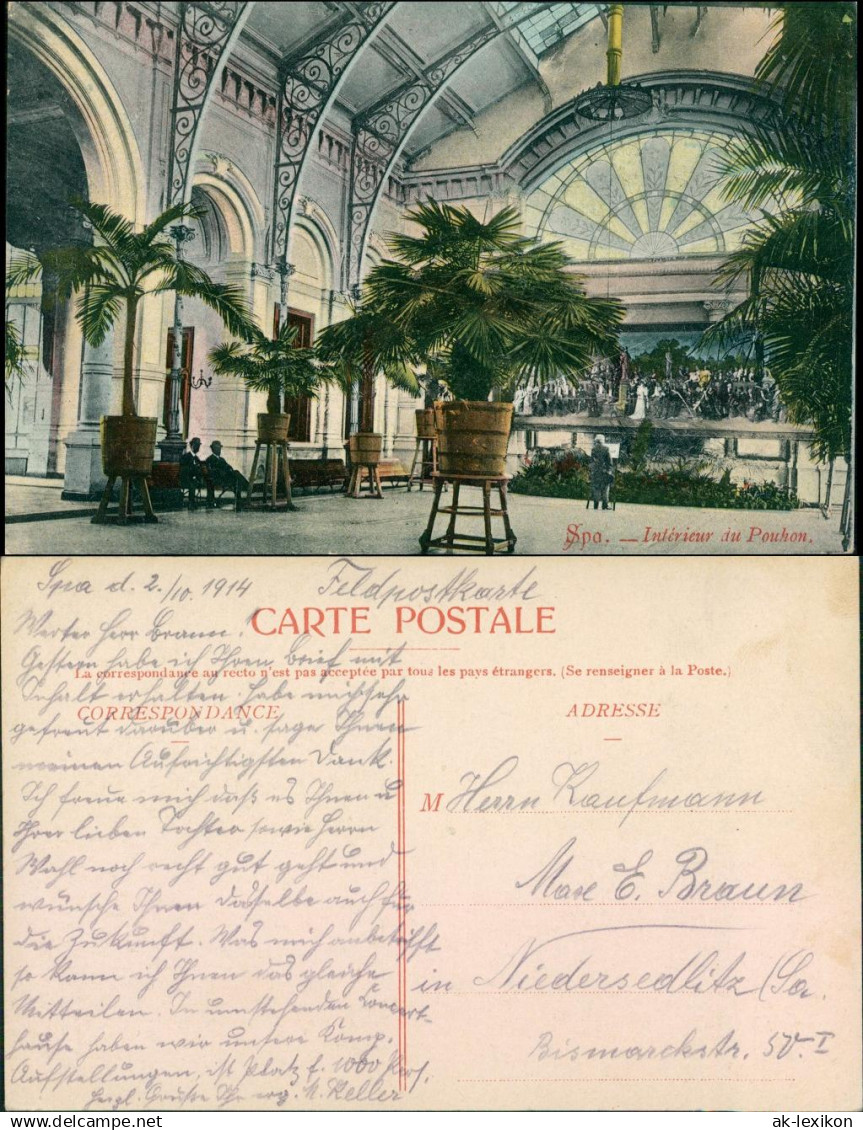 Spa. — Intérieur du Pouhon.
Spa d. 2./10. 1914 Feldpostkarte
CARTE POSTALE
Werter Herr Braun!
Gestern habe ich Ihren Brief mit
La correspondance au recto n'est pas acceptée par tous les pays étrangers. (Se renseigner à la Poste.)
Inhalt erhalten. Habe mich sehr
CORRESPONDANCE
gefreut darüber u. sage Ihnen
meinen Aufrichtigsten Dank.
Ich freue mich daß es Ihnen u
Ihrer lieben Tochter sowie Herrn
Wahl noch recht gut geht und
wünsche Ihnen dasselbe auch für
die Zukunft. Was mich anbetrifft
so kann ich Ihnen das gleiche
Mitteilen. In umstehenden Konzert-
hause haben wir unsere Komp.
Aufstellungen, ist Platz f. 1000 Pers.
Herzl. Grüße Ihr erg. M. Keller
ADRESSE
M Herrn Kaufmann
Max E. Braun
in Niedersedlitz (Sa.
Bismarckstr. 50. I
ak-lexikon